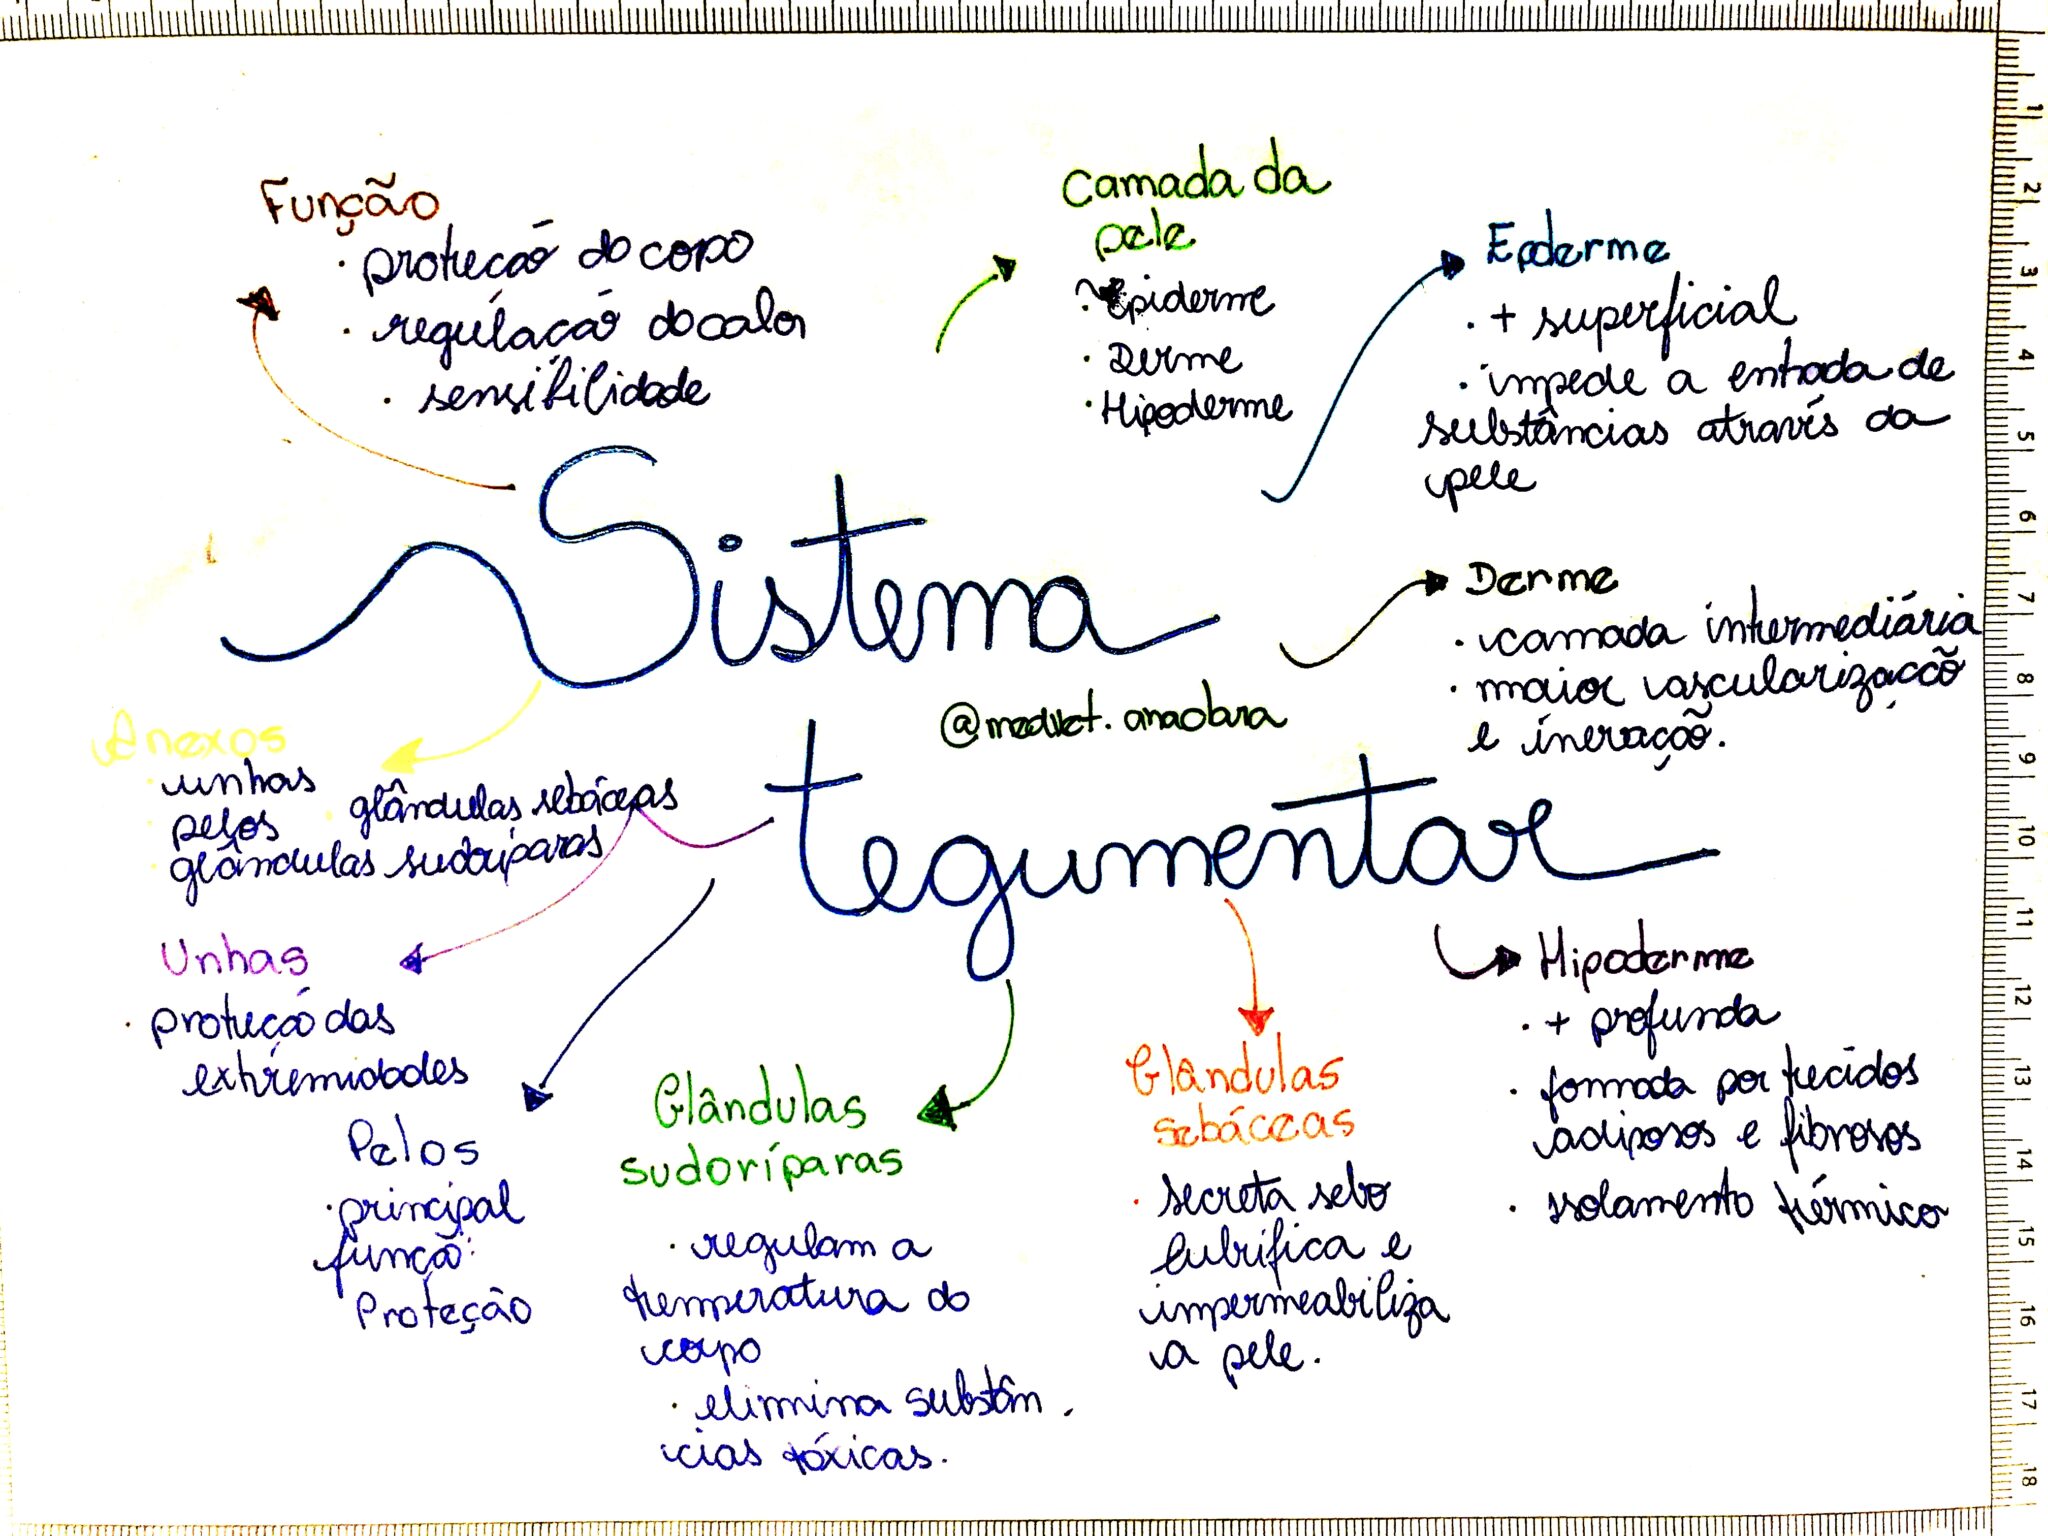 Função
· proteção do copo
· regulação do calor
· sensibilidade
Camada da
pele
· Epiderme
· Derme
· Hipoderme
Epderme
· + superficial
· impede a entrada de
substâncias através da
pele
Sistema
tegumentar
@medvet.anaclara
Derme
· camada intermediária
· maior vascularização
e inervação.
Anexos
· unhas
· pelos
· glândulas sebáceas
· glândulas sudoríparas
Unhas
· proteção das
extremidades
Pelos
· principal
função:
Proteção
Glândulas
sudoríparas
· regulam a
temperatura do
corpo
· elimina substân
cias tóxicas.
Glândulas
sebáceas
· secreta sebo
lubrifica e
impermeabiliza
a pele.
Hipoderme
· + profunda
· formada por tecidos
adiposos e fibrosos
· isolamento térmico
1
2
3
4
5
6
7
8
9
10
11
12
13
14
15
16
17
18